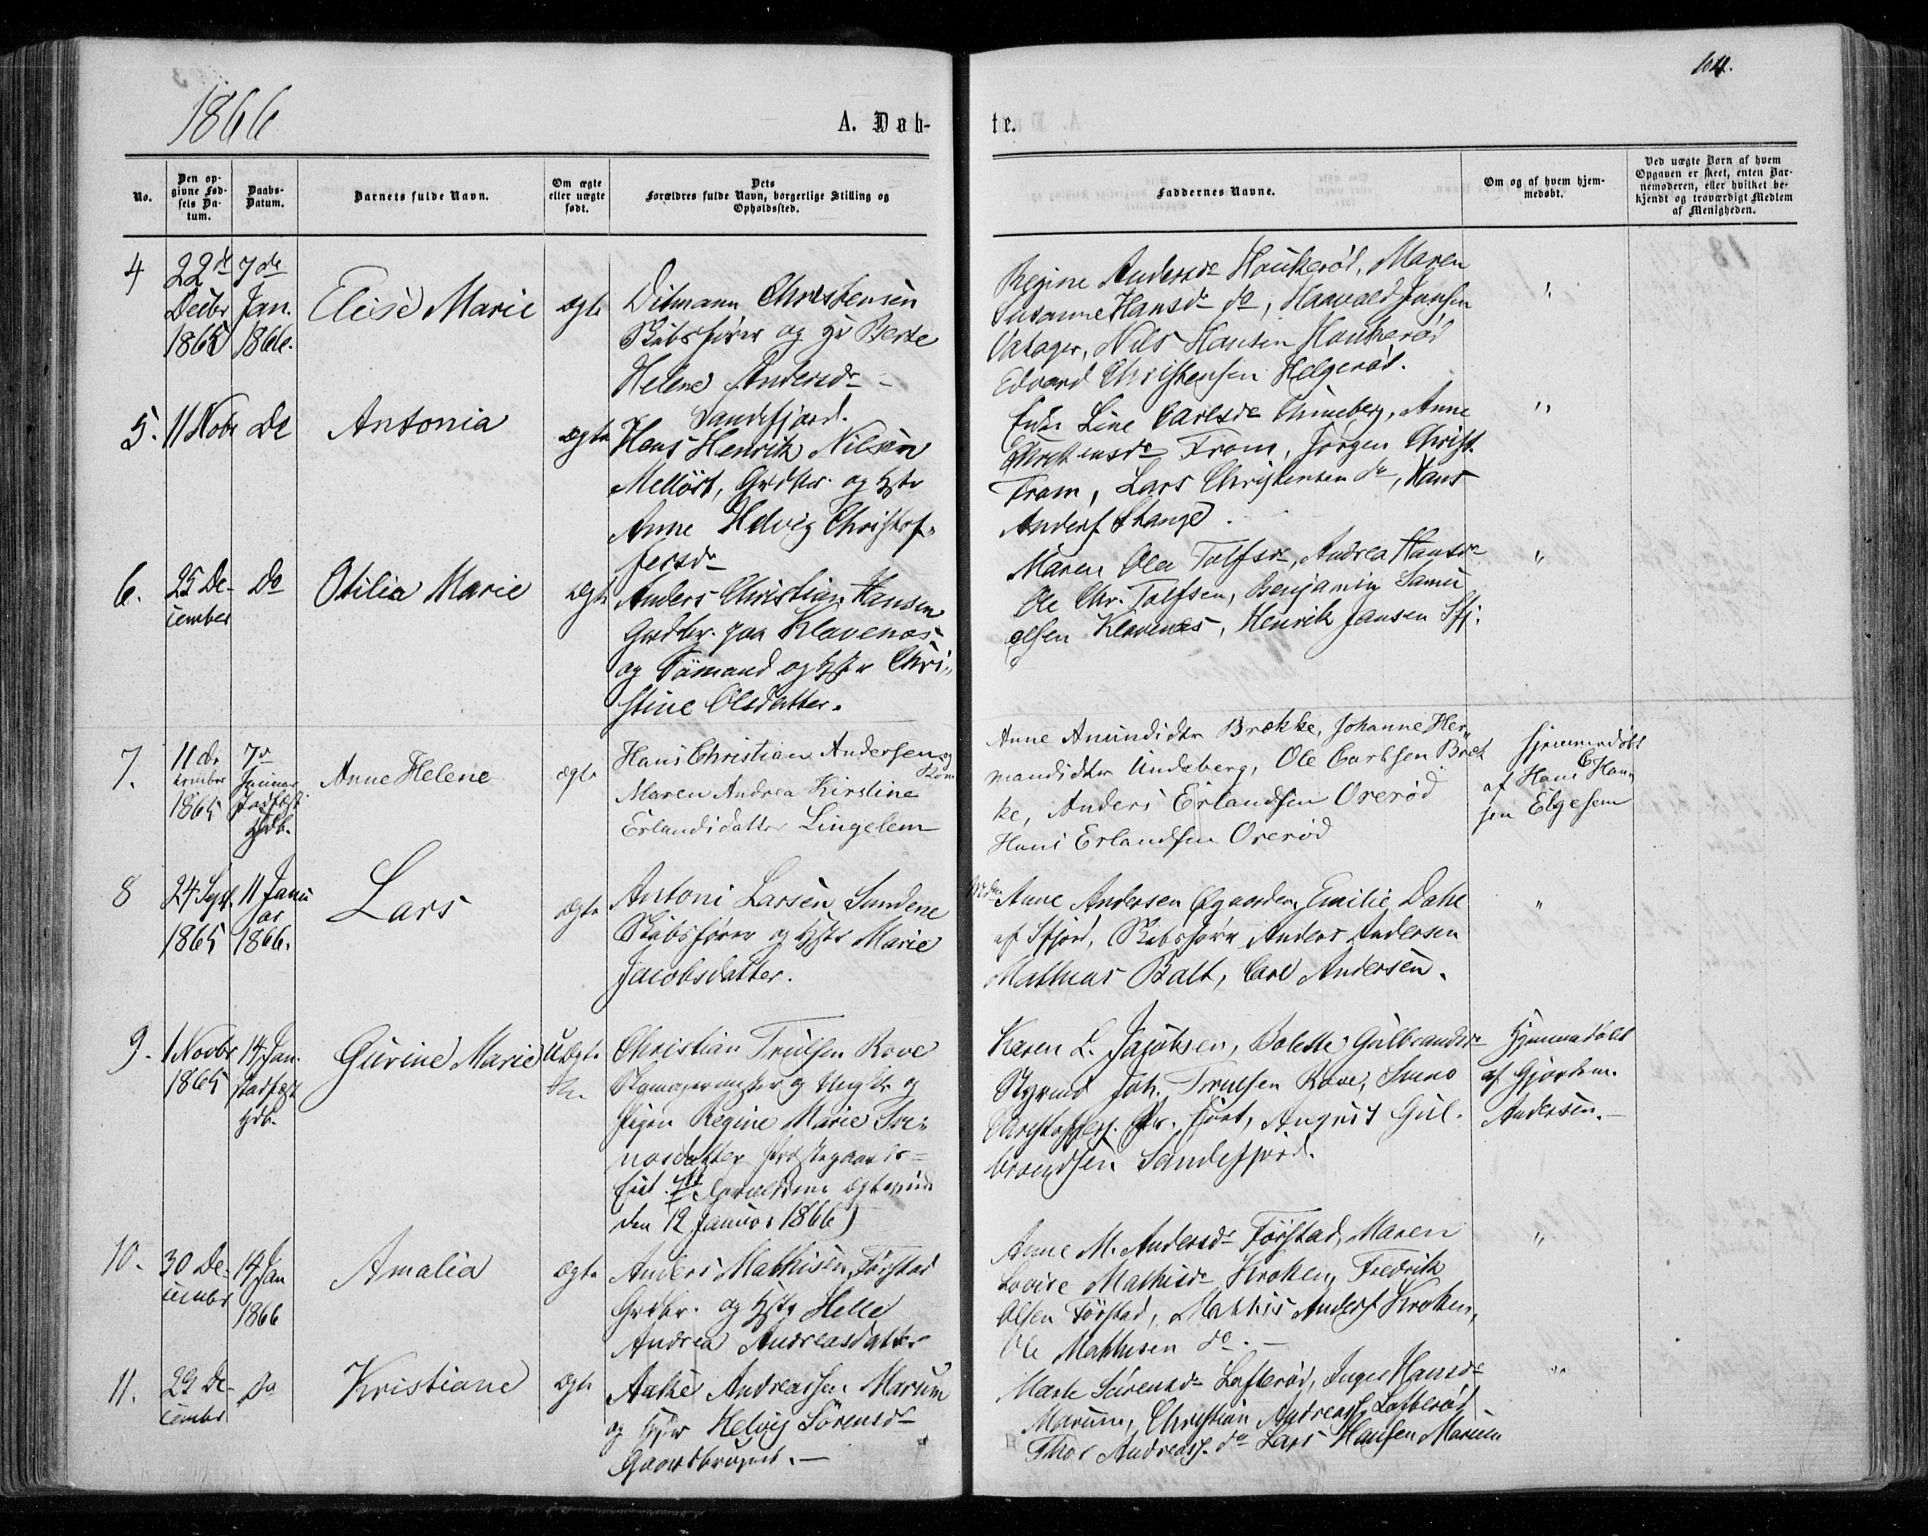 1866
A. Daab-
te.
104.
No.
Den op-
givne Fød-
sels Da-
tum.
Daabs-
Datum.
Barnets fulde Navn.
Om ægte
eller uægte
født.
Dets
Forældres fulde Navn, borgerlige Stilling og
Opholdssted.
Faddernes Navne.
Om og af hvem hjem-
medøbt.
Ved uægte Børn af hvem
Opgaven er skeet, enten Bar-
nemoderen, eller hvilket be-
kjendt og troværdigt Medlem
af Menigheden.
4
22de
Decbr
1865
7de
Jan.
1866.
Elise Marie
ægte
Ditmann Christensen
Skibsfører og H Berte
Helene Andersdr
Sandefjord.
Regine Andersdr Haukerød, Maren
Susanne Hansdr do, Haavald Jansen
Nils Hansen Haukerød
Edvard Christensen Helgerød.
"
5.
11 Nobr
do
Antonia
ægte
Hans Henrik Nilsen
Melløst, Grdbr. og Hstr
Anne Helvig Christof-
fersdr
Line Carlsdr Unneberg, Anne
Fram, Jørgen Christ.
Fram, Lars Christensen do, Hans
Anders Stange.
"
6.
25 De-
cember
do
Otilia Marie
ægte
Anders Christian Hansen
Grdbr. paa Klavenæs
og Sømand og Hstr Chri-
stine Olsdatter.
Maren Olea Tolfsdr, Andrea Hansdr
Ole Chr. Tolfsen, Benjamin Samu
elsen Klavenæs, Henrik Jansen Sfj.
"
7.
11 De
cember
1865
7de
Januar
Stadfæst
Hjdb.
Anne Helene
ægte
Hans Christian Andersen og
Kone
Maren Andrea Kirstine
Erlandsdatter Lingelem
Anne Amundsdtr Brække, Johanne Her-
mandsdtr Undeberg, Ole Carlsen Bræk
ke, Anders Erlandsen Orerød
Hans Erlandsen Orerød
Hjemmedøbt
af Hans C Han-
sen Elgesem
8
24 Sept.
1865
11 Janu
ar
1866.
Lars
ægte
Antoni Larsen Sundene
Skibsfører og Hstr Marie
Jacobsdatter.
Anne Andersen Øgaarden, Emilie Dahl
af Sfjord, Skibsfører Anders Andersen
Mathias Balt, Carl Andersen.
"
9.
1 Novbr
1865
14 Jan.
stadfæst
Hjdb.
Gurine Marie
Uægte
Christian Trulsen Rove
Skomagermester og Ungkr og
Pigen Regine Marie Tri-
nosdatter Præstegaards-
Eiet. Forældrene ægteviede
den 12 Januar 1866)
Karen L. Jacobsen, Bolette Gulbrandsdr
Styrmd Joh. Trulsen Rove,
Christoffers. August Gul-
brandsen Sandefjord.
Hjemmedøbt
af Gjordem.
Andersen.
10.
30 De-
cembr
14 Jan
1866
Amalia
ægte
Anders Mathisen Førstad
Grdbr. og Hstr Helle
Andrea Andreasdatter
Anne M. Andersdr Førstad, Maren
Lovise Mathisdr Kroken, Fredrik
Olsen Førstad, Mathis Anders Kroken,
Ole Mathisen do.
"
11.
29 De-
cembr
do
Kristiane
ægte
Anthe Andreassen Marum
og Hstr Helvig Sørensdr
Gaardbruger.
Marte Sørensdr Lofterød, Inger Hansdr
Marum, Christian Andreass. Lofterød
Thor Andreass. do Lars Hansen Marum
"